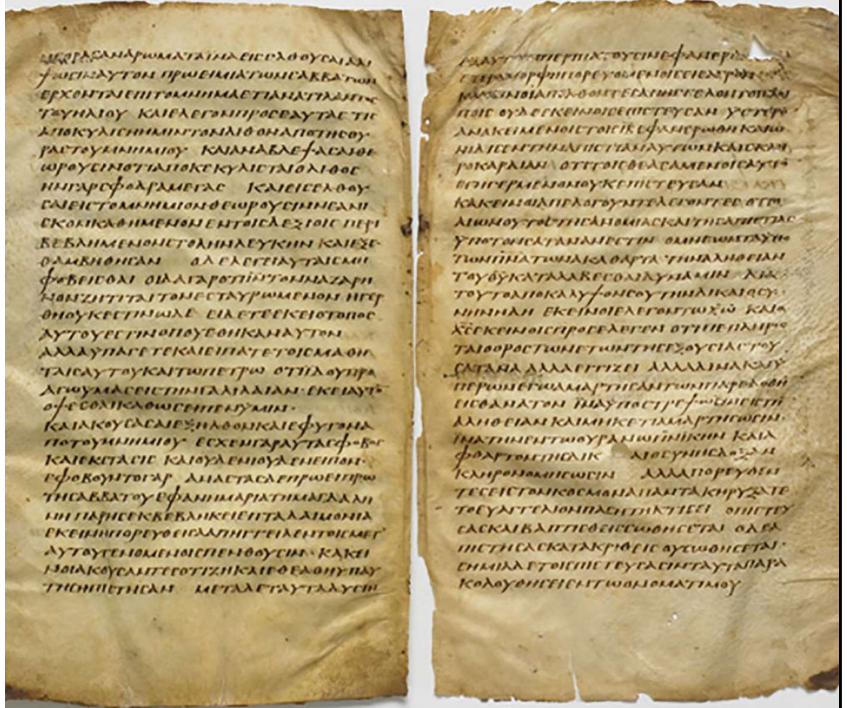 ΗΓΟΡΑϹΑΝΑΡΩΜΑΤΑΪΝΑΕΙϹΕΛΘΟΥϹΑΙΑΛΙ
ΨΩϹΙΝΑΥΤΟΝ ΠΡΩΕΙΜΙΑΤΩΝϹΑΒΒΑΤΩΝ
ΕΡΧΟΝΤΑΙΕΠΙΤΟΜΝΗΜΑΕΤΙΑΝΑΤΙΛΑΝΤΟϹ
ΤΟΥΗΛΙΟΥ ΚΑΙΕΛΕΓΟΝΠΡΟϹΕΑΥΤΑϹ ΤΙϹ
ΑΠΟΚΥΛΙϹΗΗΜΙΝΤΟΝΛΙΘΟΝΑΠΟΤΗϹΘΥ
ΡΑϹΤΟΥΜΝΗΜΙΟΥ ΚΑΙΑΝΑΒΛΕΨΑϹΑΙΘΕ
ΩΡΟΥϹΙΝΟΤΙΑΠΟΚΕΚΥΛΙϹΤΑΙΟΛΙΘΟϹ
ΗΝΓΑΡϹΦΟΔΡΑΜΕΓΑϹ ΚΑΙΕΙϹΕΛΘΟΥ
ϹΑΙΕΙϹΤΟΜΝΗΜΙΟΝΘΕΩΡΟΥϹΙΝΝΕΑΝΙ
ϹΚΟΝΚΑΘΗΜΕΝΟΝΕΝΤΟΙϹΔΕΞΙΟΙϹ ΠΕΡΙ
ΒΕΒΛΗΜΕΝΟΝϹΤΟΛΗΝΛΕΥΚΗΝ ΚΑΙΕΞΕ
ΘΑΜΒΗΘΗϹΑΝ ΟΔΕΛΕΓΕΙΑΥΤΑΙϹΜΗ
ΦΟΒΕΙϹΘΑΙ ΟΙΔΑΓΑΡΟΤΙΙΝΤΟΝΝΑΖΑΡΗ
ΝΟΝΖΗΤΙΤΑΙΤΟΝΕϹΤΑΥΡΩΜΕΝΟΝ ΗΓΕΡ
ΘΗΟΥΚΕϹΤΙΝΩΔΕ ΕΙΔΕΤΕΕΚΕΙΟΤΟΠΟϹ
ΑΥΤΟΥΕϹΤΙΝΟΠΟΥΕΘΗΚΑΝΑΥΤΟΝ
ΑΛΛΑΫΠΑΓΕΤΕΚΑΙΕΙΠΑΤΕΤΟΙϹΜΑΘΗ
ΤΑΙϹΑΥΤΟΥΚΑΙΤΩΠΕΤΡΩ ΟΤΙΪΔΟΥΠΡΟ
ΑΓΩΫΜΑϹΕΙϹΤΗΝΓΑΛΙΛΑΙΑΝ·ΕΚΕΙΑΥΤΟ
ΟΨΕϹΘΑΙΚΑΘΩϹΕΙΠΕΝΥΜΙΝ·
ΚΑΙΑΚΟΥϹΑϹΑΙΕΞΗΛΘΟΝΚΑΙΕΦΥΓΟΝΑ
ΠΟΤΟΥΜΝΗΜΙΟΥ ΕϹΧΕΝΓΑΡΑΥΤΑϹΦΟΒΟϹ
ΚΑΙΕΚϹΤΑϹΙϹ ΚΑΙΟΥΔΕΝΙΟΥΔΕΝΕΙΠΟΝ·
ΕΦΟΒΟΥΝΤΟΓΑΡ ΑΝΑϹΤΑϹΔΕΠΡΩΕΙΠΡΩ
ΤΗϹΑΒΒΑΤΟΥΕΦΑΝΗΜΑΡΙΑΤΗΜΑΓΔΑΛΗ
ΝΗ ΠΑΡΗϹΕΚΒΕΒΛΗΚΕΙΕΠΤΑΔΑΙΜΟΝΙΑ
ΕΚΕΙΝΗΠΟΡΕΥΘΕΙϹΑΑΠΗΓΓΕΙΛΕΝΤΟΙϹΜΕΤ
ΑΥΤΟΥΓΕΝΟΜΕΝΟΙϹΠΕΝΘΟΥϹΙΝ·ΚΑΚΕΙ
ΝΟΙΑΚΟΥϹΑΝΤΕϹΟΤΙΖΗΚΑΙΕΘΕΑΘΗΥΠΑΥ
ΤΗϹΗΠΙϹΤΗϹΑΝ ΜΕΤΑΔΕΤΑΥΤΑΔΥϹΙΝ
ΕΞΑΥΤΩΝΠΕΡΙΠΑΤΟΥϹΙΝΕΦΑΝΕΡΩΘΗ
ΕΤΕΡΑΜΟΡΦΗΠΟΡΕΥΟΜΕΝΟΙϹΕΙϹΑΓΡΟΝ
ΚΑΚΕΙΝΟΙΑΠΕΛΘΟΝΤΕϹΑΠΗΓΓΕΛΟΝΤΟΙϹΛΟΙ
ΠΟΙϹ ΟΥΔΕΕΚΕΙΝΟΙϹΕΠΙϹΤΕΥϹΑΝ ΫϹΤΕΡΟ
ΑΝΑΚΕΙΜΕΝΟΙϹΤΟΙϹΙΑΕΦΑΝΕΡΩΘΗ ΚΑΙΩ
ΝΙΔΙϹΕΝΤΗΝΑΠΙϹΤΙΑΝΑΥΤΩΝΚΑΙϹΚΛΗ
ΡΟΚΑΡΔΙΑΝ ΟΤΙΤΟΙϹΘΕΑϹΑΜΕΝΟΙϹΑΥΤΟ
ΕΓΗΓΕΡΜΕΝΟΝΟΥΚΕΠΙϹΤΕΥϹΑΝ
ΚΑΚΕΙΝΟΙΑΠΕΛΟΓΟΥΝΤΕΛΕΓΟΝΤΕϹ ΟΤΙΟ
ΑΙΩΝΟΥΤΟϹΤΗϹΑΝΟΜΙΑϹΚΑΙΤΗϹΑΠΙϹΤΙΑϹ
ΫΠΟΤΟΝϹΑΤΑΝΑΝΕϹΤΙΝ ΟΜΗΕΩΝΤΑΫΠΟ
ΤΩΝΠΝΑΤΩΝΑΚΑΘΑΡΤΑ ΤΗΝΑΛΗΘΕΙΑΝ
ΤΟΥΘΥΚΑΤΑΛΑΒΕϹΘΑΙΔΥΝΑΜΙΝ ΔΙΑ
ΤΟΥΤΟΑΠΟΚΑΛΥΨΟΝϹΟΥΤΗΝΔΙΚΑΙΟϹΥ
ΝΗΝΗΔΗ ΕΚΕΙΝΟΙΕΛΕΓΟΝΤΩΧΩ ΚΑΙΟ
ΧϹΕΚΕΙΝΟΙϹΠΡΟϹΕΛΕΓΕΝ ΟΤΙΠΕΠΛΗΡΩ
ΤΑΙΟΟΡΟϹΤΩΝΕΤΩΝΤΗϹΕΞΟΥϹΙΑϹΤΟΥ
ϹΑΤΑΝΑ ΑΛΛΑΕΓΓΙΖΕΙ ΑΛΛΑΔΙΝΑΚΑΙΫ
ΠΕΡΩΝΕΓΩΑΜΑΡΤΗϹΑΝΤΩΝΠΑΡΕΔΟΘΗ
ΕΙϹΘΑΝΑΤΟΝ ΪΝΑΫΠΟϹΤΡΕΨΩϹΙΝΕΙϹΤΗ
ΑΛΗΘΕΙΑΝ ΚΑΙΜΗΚΕΤΙΑΜΑΡΤΗϹΩϹΙΝ·
ΪΝΑΤΗΝΕΝΤΩΟΥΡΑΝΩΠΝΙΚΗΝ ΚΑΙΑ
ΦΘΑΡΤΟΝΤΗϹΔΙΚΑΙΟϹΥΝΗϹΔΟΞΑΝ
ΚΛΗΡΟΝΟΜΗϹΩϹΙΝ ΑΛΛΑΠΟΡΕΥΘΕΝ
ΤΕϹΕΙϹΤΟΝΚΟϹΜΟΝΑΠΑΝΤΑΚΗΡΥΞΑΤΕ
ΤΟΕΥΑΓΓΕΛΙΟΝΠΑϹΗΤΗΚΤΙϹΕΙ ΟΠΙϹΤΕΥ
ϹΑϹΚΑΙΒΑΠΤΙϹΘΕΙϹϹΩΘΗϹΕΤΑΙ ΟΔΕΑ
ΠΙϹΤΗϹΑϹΚΑΤΑΚΡΙΘΕΙϹ ΟΥϹΩΘΗϹΕΤΑΙ·
ϹΗΜΙΑΔΕΤΟΙϹΠΙϹΤΕΥϹΑϹΙΝΤΑΥΤΑΠΑΡΑ
ΚΟΛΟΥΘΗϹΕΙΕΝΤΩΟΝΟΜΑΤΙΜΟΥ